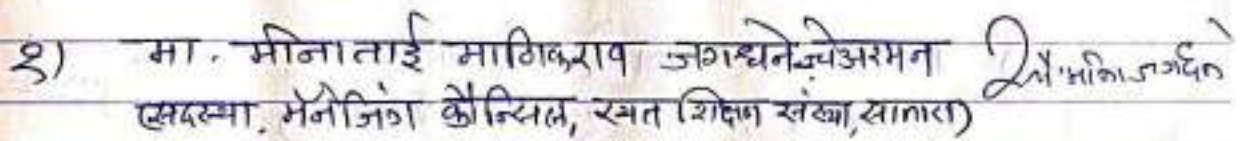 १) मा. मीनाताई माणिकराव जगधने चेअरमन सौ. मीना जगधने
(सदस्या, मॅनेजिंग कौन्सिल, रयत शिक्षण संस्था, सातारा)